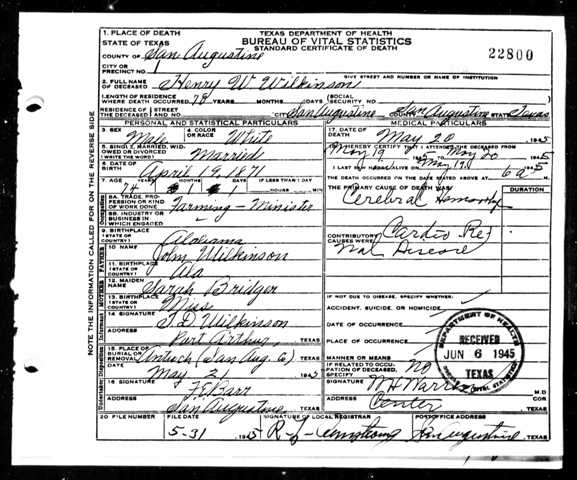 TEXAS DEPARTMENT OF HEALTH
BUREAU OF VITAL STATISTICS
STANDARD CERTIFICATE OF DEATH
22800
1. PLACE OF DEATH
STATE OF TEXAS
COUNTY OF San Augustine
CITY OR
PRECINCT NO. 1
GIVE STREET AND NUMBER OR NAME OF INSTITUTION
2. FULL NAME
OF DECEASED Henry W. Wilkinson
LENGTH OF RESIDENCE
WHERE DEATH OCCURRED 78 YEARS MONTHS DAYS SOCIAL SECURITY NO.
RESIDENCE OF THE DECEASED STREET AND NO. CITY San Augustine COUNTY San Augustine STATE Texas
PERSONAL AND STATISTICAL PARTICULARS
MEDICAL PARTICULARS
3. SEX Male 4. COLOR OR RACE White
5. SINGLE, MARRIED, WIDOWED OR DIVORCED (WRITE THE WORD) Married
6. DATE OF BIRTH April 9, 1871
7. AGE YEARS MONTHS DAYS IF LESS THAN 1 DAY
74 1 11 HOURS MIN
8A. TRADE, PROFESSION OR KIND OF WORK DONE Farming - Minister
8B. INDUSTRY OR BUSINESS IN WHICH ENGAGED
9. BIRTHPLACE (STATE OR COUNTRY) Alabama
10. NAME John Wilkinson
11. BIRTHPLACE (STATE OR COUNTRY) Ala
12. MAIDEN NAME Sarah Bridger
13. BIRTHPLACE (STATE OR COUNTRY) Miss
14. SIGNATURE J D Wilkinson
ADDRESS Port Arthur, TEXAS
15. PLACE OF BURIAL OR REMOVAL Antioch (San Aug. Co) TEXAS
DATE May 21 1945
16. SIGNATURE F. E. Barr
ADDRESS San Augustine, TEXAS
17. DATE OF DEATH May 20, 1945
I HEREBY CERTIFY THAT I ATTENDED THE DECEASED FROM
May 20 1945
I LAST SAW H ALIVE ON
THE DEATH OCCURRED ON THE DATE STATED ABOVE AT 6 a M
THE PRIMARY CAUSE OF DEATH WAS: DURATION
Cerebral
CONTRIBUTORY CAUSES WERE Cardio Re
nal Disease
IF NOT DUE TO DISEASE, SPECIFY WHETHER:
ACCIDENT, SUICIDE, OR HOMICIDE
DATE OF OCCURRENCE
PLACE OF OCCURRENCE
MANNER OR MEANS
IF RELATED TO OCCUPATION OF DECEASED, SPECIFY no
SIGNATURE M.D.
ADDRESS Center TEXAS
DEPARTMENT OF HEALTH
RECEIVED
JUN 6 1945
TEXAS
VITAL STATISTICS
20 FILE NUMBER FILE DATE SIGNATURE OF LOCAL REGISTRAR POSTOFFICE ADDRESS
5-31 1945 San Augustine TEXAS
NOTE THE INFORMATION CALLED FOR ON THE REVERSE SIDE